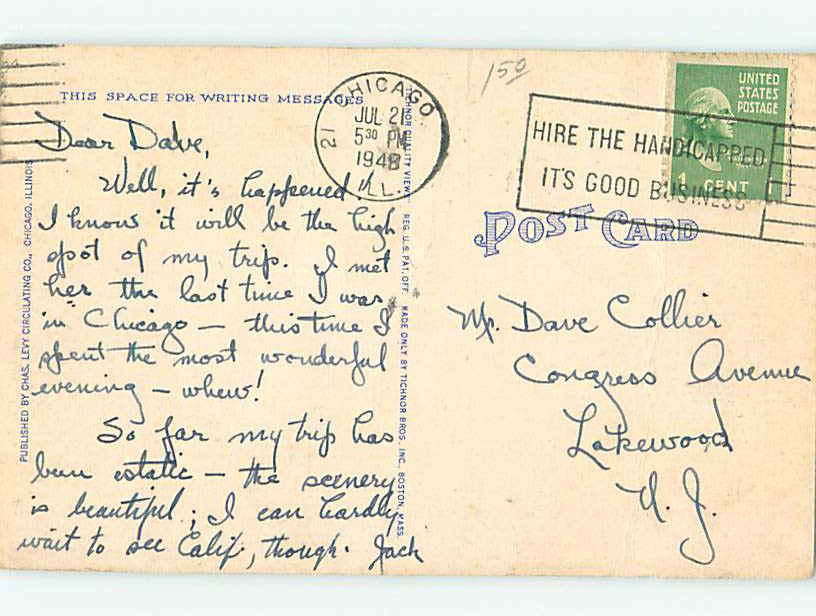 150
THIS SPACE FOR WRITING MESSAGES
CHICAGO
JUL 21
5 30 PM
1948
ILL.
21
HIRE THE HANDICAPPED
IT'S GOOD BUSINESS
UNITED
STATES
POSTAGE
1 CENT
POST CARD
Dear Dave,
Well, it's happened!
I know it will be the high
spot of my trip. I met
her the last time I was
in Chicago — this time I
spent the most wonderful
evening — whew!
So far my trip has
been estatic — the scenery
is beautiful; I can hardly
wait to see Calif, though. Jack
Mr. Dave Collier
Congress Avenue
Lakewood
N. J.
PUBLISHED BY CHAS. LEVY CIRCULATING CO., CHICAGO, ILLINOIS
"TICHNOR QUALITY VIEWS" REG. U.S. PAT. OFF. MADE ONLY BY TICHNOR BROS. INC., BOSTON, MASS.